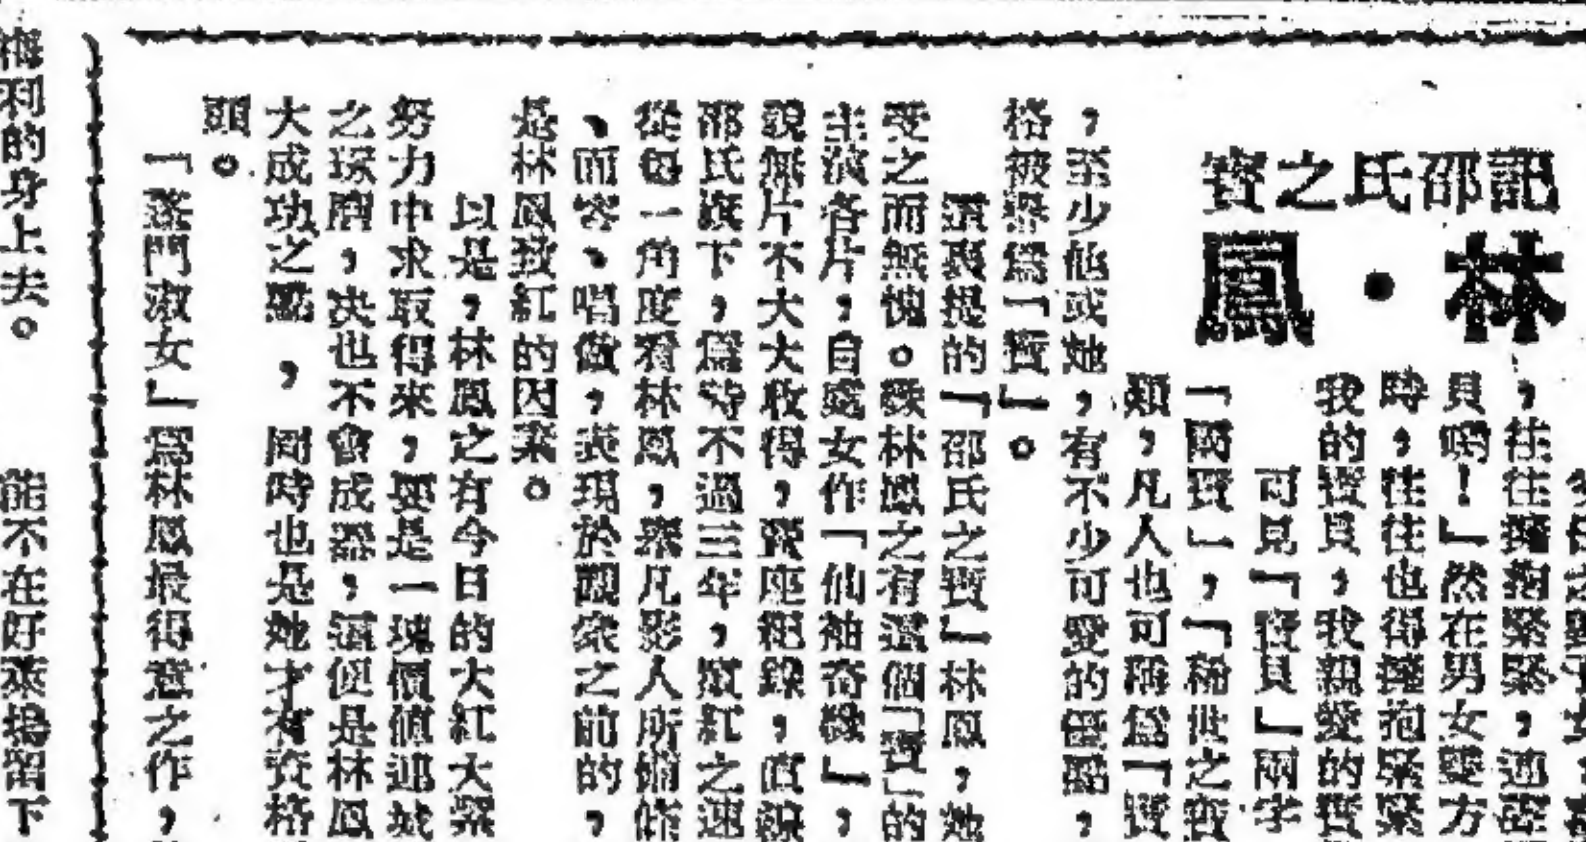 記邵氏之寶
林·鳳
，往往擁抱緊緊，連
貝喲！」然在男女雙方
時，往往也得擁抱緊緊
我的寶貝，我親愛的寶
可見「寶貝」兩字
「國寶」，「稀世之寶
類，凡人也可稱爲「寶
，至少他或她，有不少可愛的優點，
格被譽爲「寶」。
還裏提的「邵氏之寶」林鳳，她
受之而無愧。數林鳳之有這個「寶」的
主演各片，自處女作「仙袖奇緣」，
說無片不大大收得，賣座紀錄，直線
邵氏旗下，爲時不過三年，竄紅之速
從每一角度看林鳳，舉凡影人所備條
、面容、唱做，表現於觀衆之前的，
是林鳳致紅的因素。
以是，林鳳之有今日的大紅大紫
努力中求取得來，要是一塊價值連城
之琢磨，决也不會成器，這便是林鳳
大成功之點，同時也是她才有資格
頭。
「蓬門淑女」爲林鳳最得意之作，
梅利的身上去。
能不在好萊塢留下